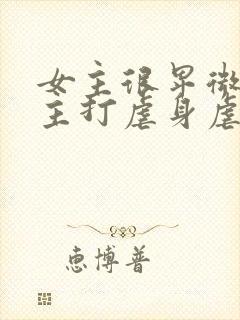 女主很早微
主打虐身虐
惠博普